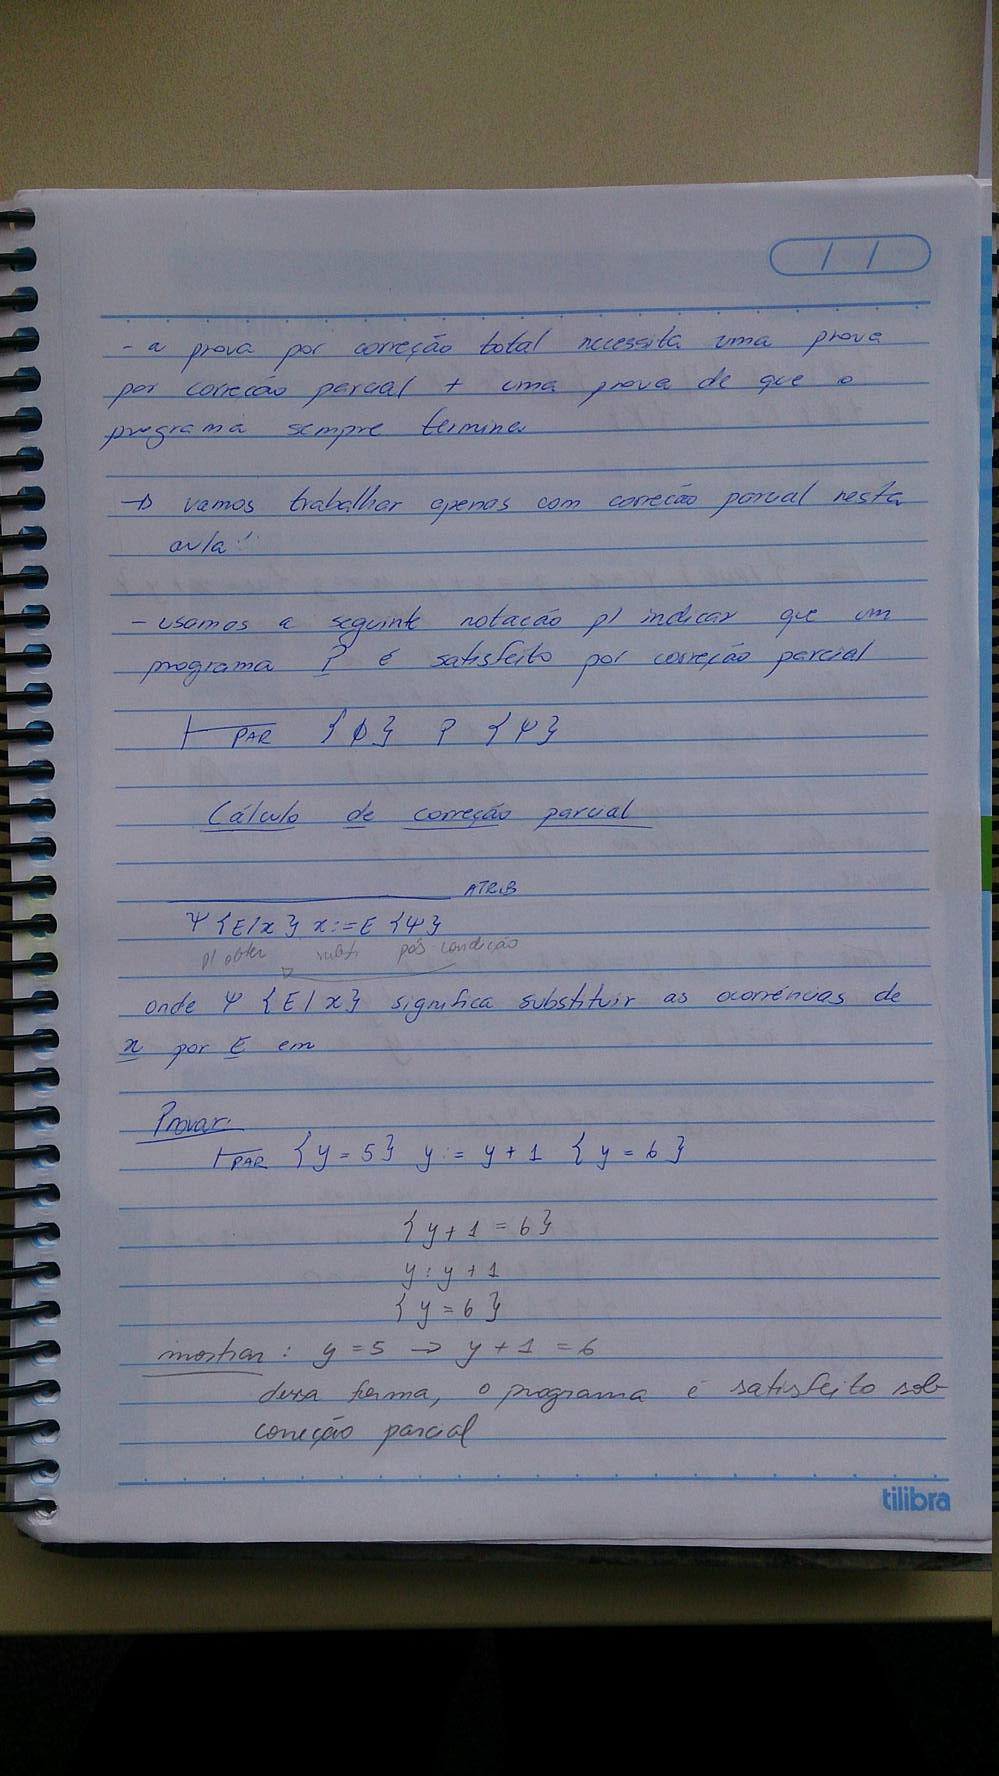 - a prova por correção total necessita uma prova
por correção parcial + uma prova de que o
programa sempre termine.
→ vamos trabalhar apenas com correção parcial nesta
aula!
- usamos a seguinte notação p/ indicar que um
programa P é satisfeito por correção parcial
⊢PAR {ϕ} P {ψ}
Cálculo de correção parcial
ATRIB
ψ {E/x} x:=E {ψ}
p/ obter subst. pós condição
onde ψ {E/x} significa substituir as ocorrências de
x por E em
Provar:
⊢PAR {y = 5} y := y + 1 {y = 6}
{y + 1 = 6}
y : y + 1
{y = 6}
mostrar: y = 5 → y + 1 = 6
dessa forma, o programa é satisfeito sob
correção parcial
tilibra